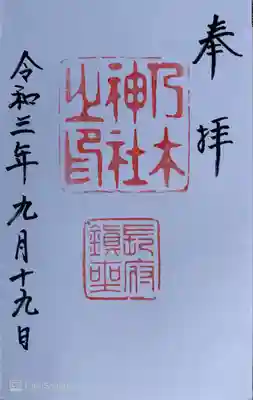 奉拝
乃木
神社
之印
長府
鎮座
令和三年九月十九日